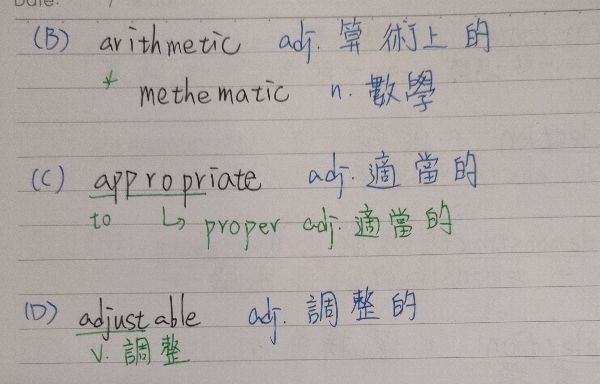 Date: /
(B) arithmetic adj. 算術上的
* methematic n. 數學
(C) appropriate adj. 適當的
to ↳ proper adj. 適當的
(D) adjustable adj. 調整的
v. 調整